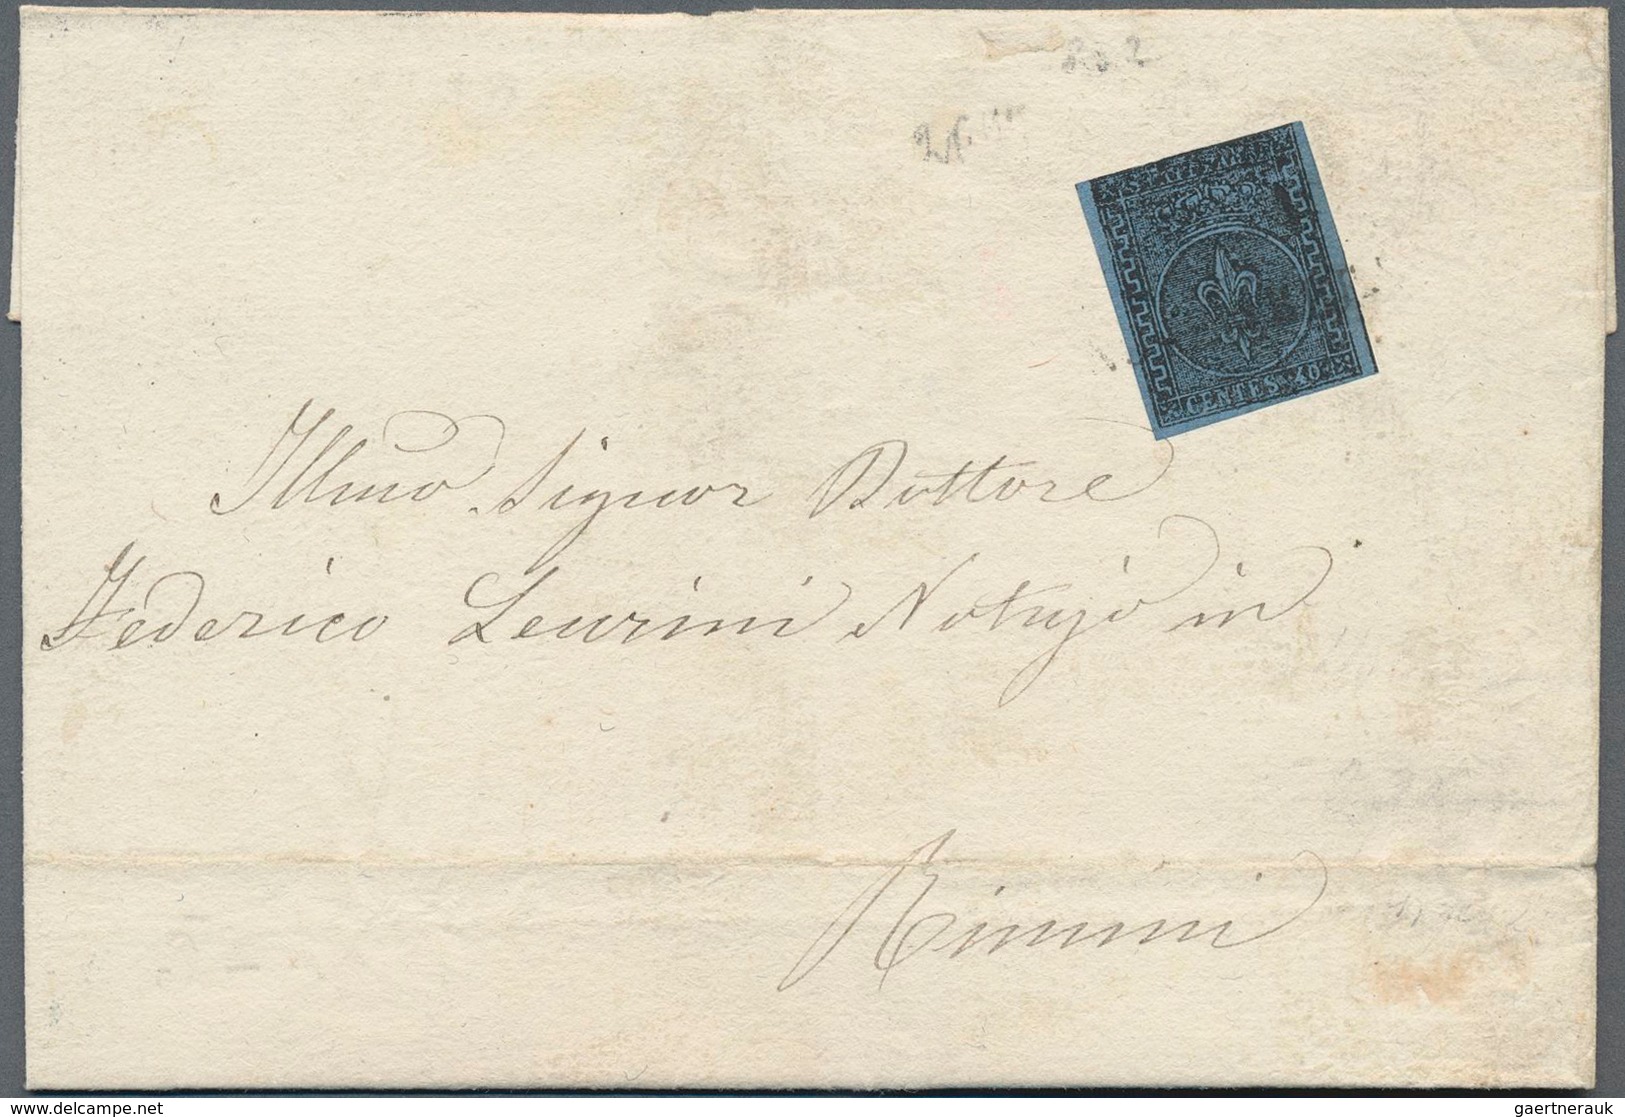 CENTES. 40
Illmo Signor Dottore
Federico Leurini Notajo in
Rimini
www.delcampe.net
gaertnerauk